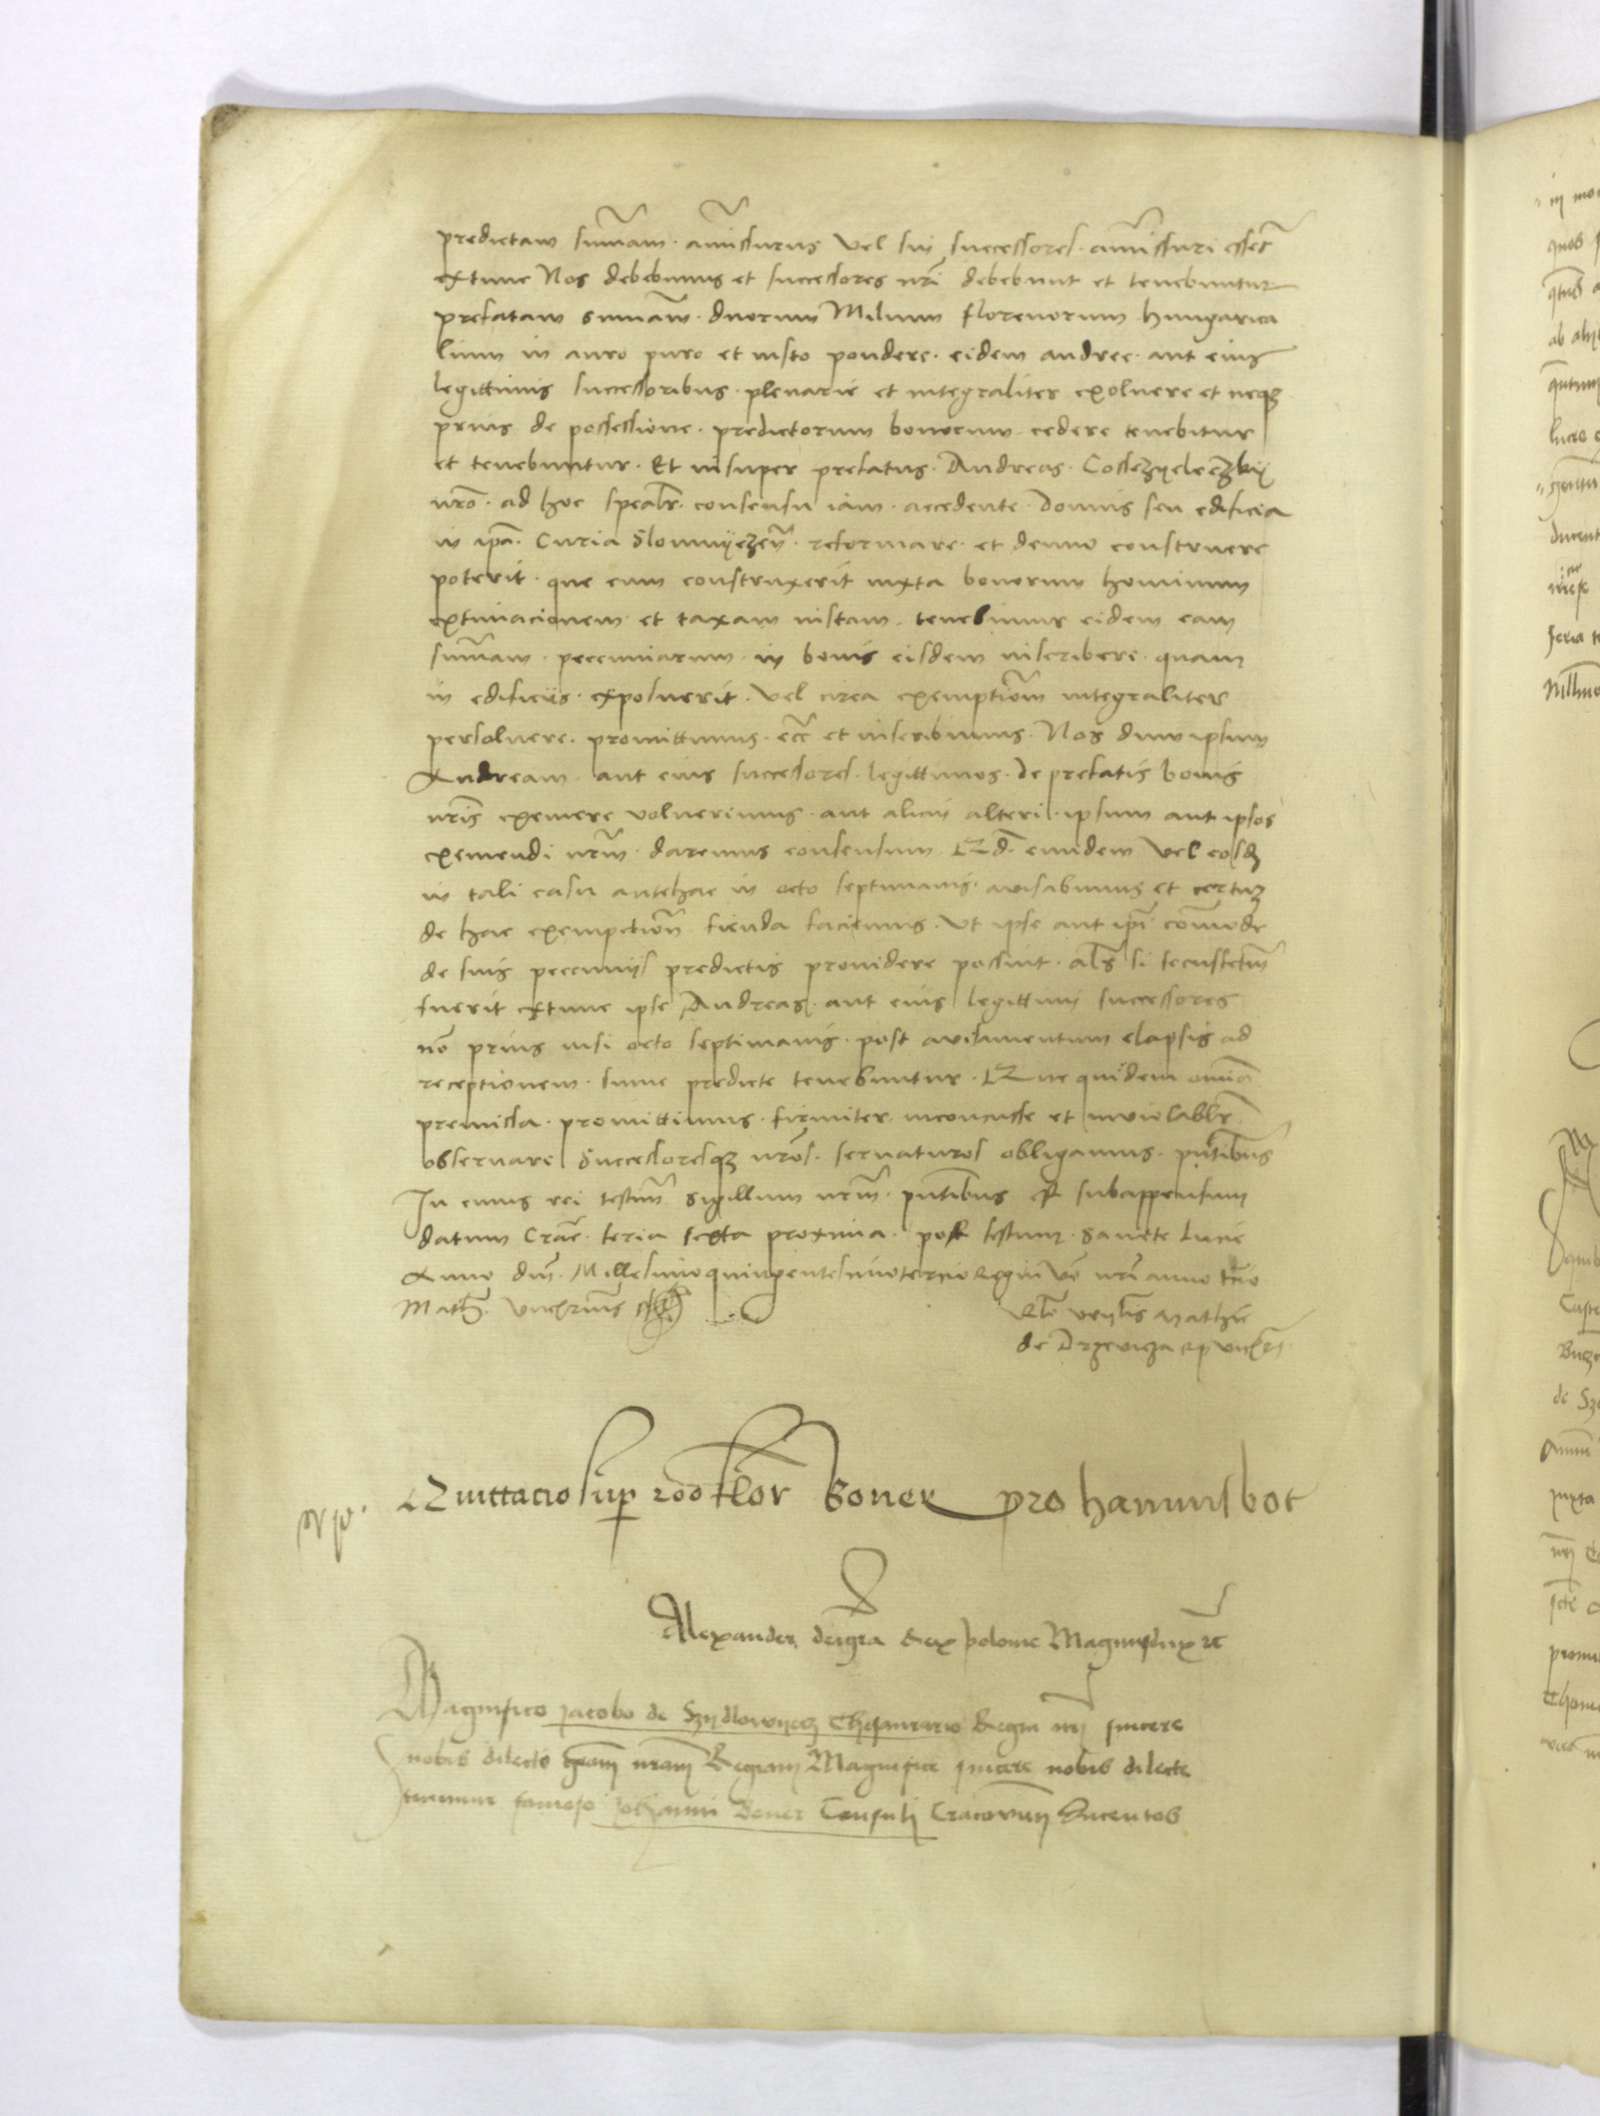 predictam sum̄am. am̄issurus vel sui successores. am̄issuri essēt
extunc Nos debebimus et successores nr̄i debebunt et tenebuntur
prefatam sum̄am. duorum Milium florenorum hungarica
lium in auro puro et iusto pondere. eidem andree. aut eius
legittimis successoribus. plenarie et integraliter exoluere et neqȝ
prius de possessione. predictorum bonorum cedere tenebitur
et tenebuntur. Et insuper prefatus. Andreas.
nr̄o. ad hoc spealr̄. consensu iam. accedente. Domus seu edificia
in ip̄a. Curia reformare. et denuo construere
poterit. que cum construxerit iuxta bonorum hominum
extimacionem et taxam iustam. tenebimur eidem eam
sum̄am. peccuniarum. in bonis eisdem inscribere. quam
in edificiis. exposuerit. vel circa exemptiom̄ integraliter
persoluere. promittimus. ecc̄ et inscribimus. Nos dum ipsum
Andream. aut eius successores. legittimos. de prefatis bonis
nr̄is exemere voluerimus. aut alicui alteri. ipsum aut ipsos
exemendi nrm̄. daremus consensum. Exd̄. eundem vel eosdȝ
in tali casu antehac in octo septimanis. auisabimus et certuȝ
de hac exempction̄ fienda faciemus. Ut ipse aut ip̄i com̄ode
de suis peccuniis predictis prouidere possint. als̄ si secus
fuerit extunc ipse Andreas. aut eius legittimi successores
nō prius nisi octo septimanis. post auisamentum elapsis ad
receptionem. sume predicte tenebuntur. Que quidem om̄ia
premissa. promittimus. firmiter. inconcusse et inviolablr̄
obseruare successoresqȝ nr̄os. seruaturos obligamus. pn̄tibus
In cuius rei testim̄ sigillum nrm̄. pn̄tibus est subappensum
datum Crac̄. feria sexta proxima. post festum. Sancte Lucie
Anno dn̄i. Millesimo quingentesimo tercio Regni vō nr̄i anno
Math̄. vicecan̄s
Rl̄o ven̄lis Mathie
de Drzevicza R p vicecan̄
Quittacio sup 200 flor Boner pro
Alexander dei gr̄a Rex polonie Magnusdux ꝛc
Magnifico Jacobo de Szydlowyecz Thesaurario Regni nr̄i sincere
nobis dilecto gr̄am nr̄am Regiam Magnifice sincere nobis dilecte
tenemur famoso Johanni Boner Consuli Cracovien̄ ducentos